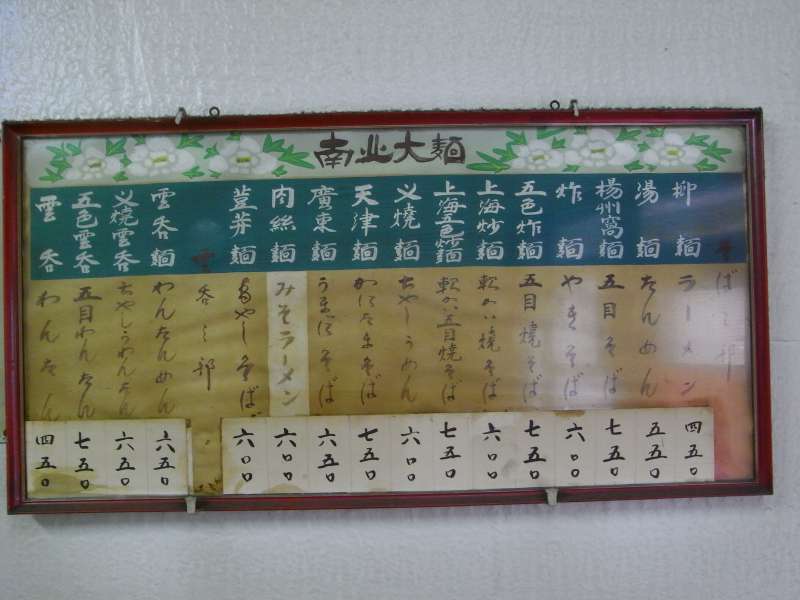 南北大麵
そば之部
柳麵 ラーメン 四五〇
湯麵 たんめん 五五〇
楊州窩麵 五目そば 七五〇
炸麵 やきそば 六〇〇
五色炸麵 五目焼そば 七五〇
上海炒麵 軟かい焼そば 六〇〇
上海五色炒麵 軟かい五目焼そば 七五〇
义燒麵 ちやしうめん 六〇〇
天津麵 かにたまそば 七五〇
廣東麵 うまにそば 六五〇
肉絲麵 みそラーメン 六〇〇
荳芽麵 もやしそば 六〇〇
雲呑之部
雲呑麵 わんたんめん 六五〇
义燒雲呑 ちやしうわんたん 六五〇
五色雲呑 五目わんたん 七五〇
雲呑 わんたん 四五〇